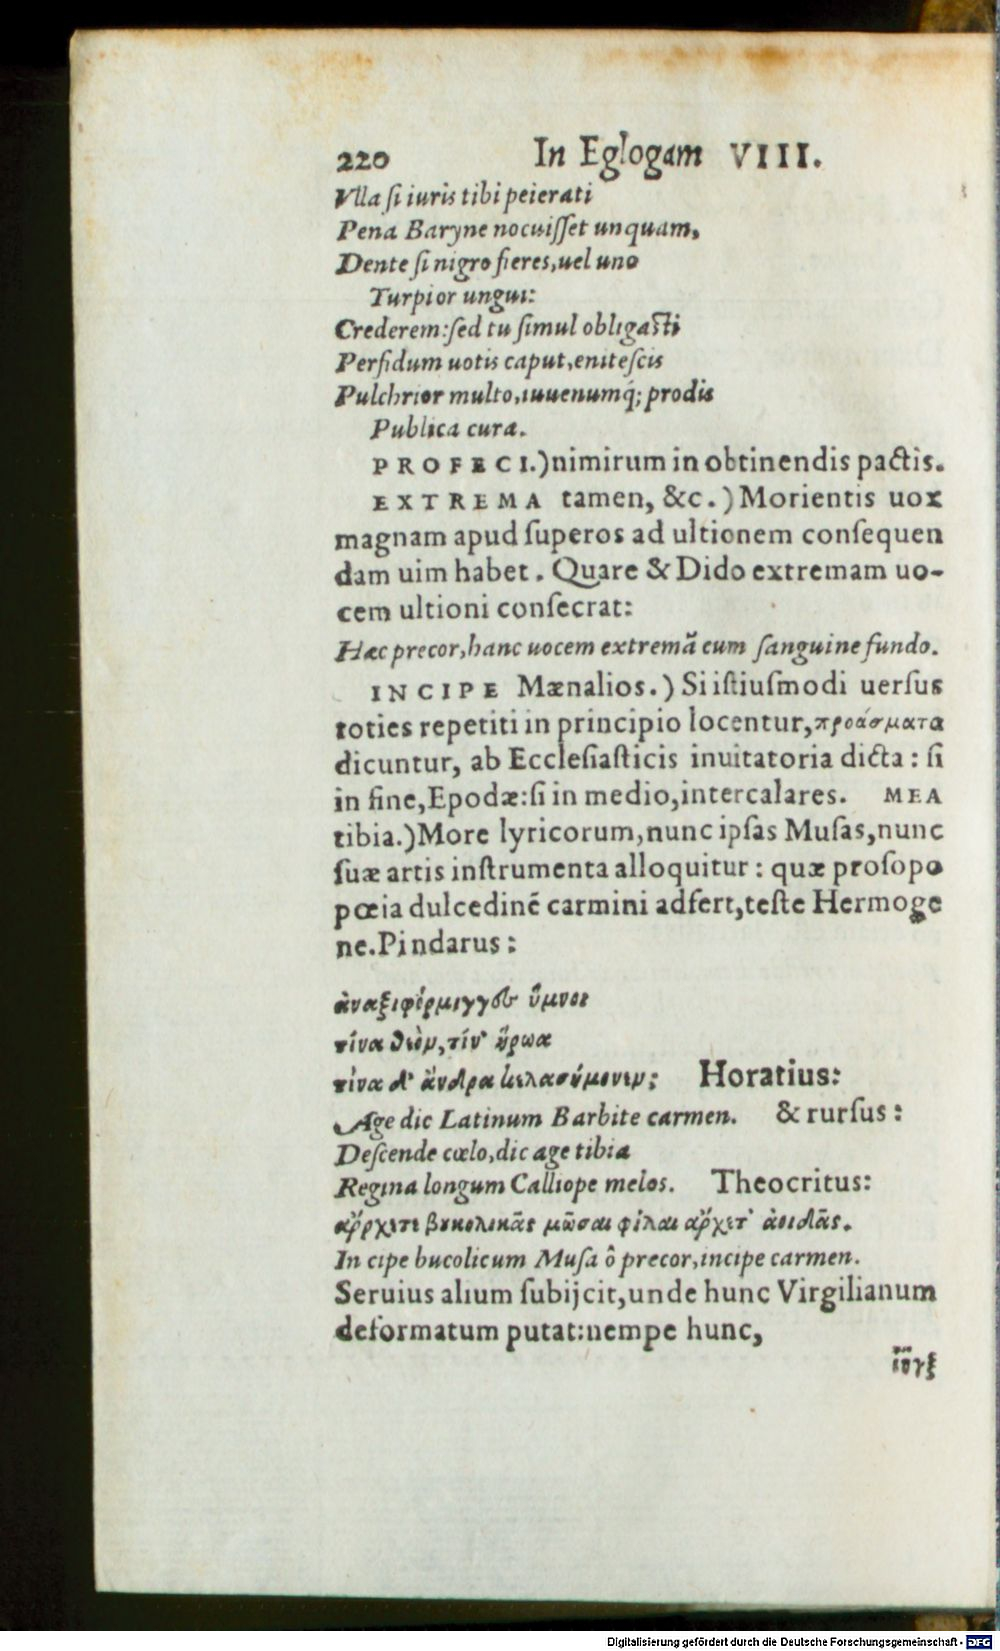 220 In Eglogam VIII.
Vlla ſi iuris tibi peierati
Pena Baryne nocuiſſet unquam,
Dente ſi nigro fieres, uel uno
Turpior ungui:
Crederem: ſed tu ſimul obligaſti
Perfidum uotis caput, eniteſcis
Pulchrior multo, iuuenumq́; prodis
Publica cura.
PROFECI.) nimirum in obtinendis pactis.
EXTREMA tamen, &c.) Morientis uox
magnam apud ſuperos ad ultionem conſequen
dam uim habet. Quare & Dido extremam uo-
cem ultioni conſecrat:
Hæc precor, hanc uocem extremã cum ſanguine fundo.
INCIPE Mænalios.) Si iſtiuſmodi uerſus
toties repetiti in principio locentur, προάσματα
dicuntur, ab Eccleſiaſticis inuitatoria dicta: ſi
in fine, Epodæ: ſi in medio, intercalares. MEA
tibia.) More lyricorum, nunc ipſas Muſas, nunc
ſuæ artis inſtrumenta alloquitur: quæ proſopo
pœia dulcedinẽ carmini adfert, teſte Hermoge
ne. Pindarus:
ἀναξιφόρμιγγες ὕμνοι
τίνα θεὸν, τίν' ἥρωα
τίνα δ' ἄνδρα κελαδήσομεν; Horatius:
Age dic Latinum Barbite carmen. & rurſus:
Deſcende cœlo, dic age tibia
Regina longum Calliope melos. Theocritus:
ἄρχετε βουκολικᾶς μῶσαι φίλαι ἄρχετ' ἀοιδᾶς.
In cipe bucolicum Muſa ô precor, incipe carmen.
Seruius alium ſubijcit, unde hunc Virgilianum
deformatum putat: nempe hunc,
ἴϋγξ
Digitalisierung gefördert durch die Deutsche Forschungsgemeinschaft - DFG